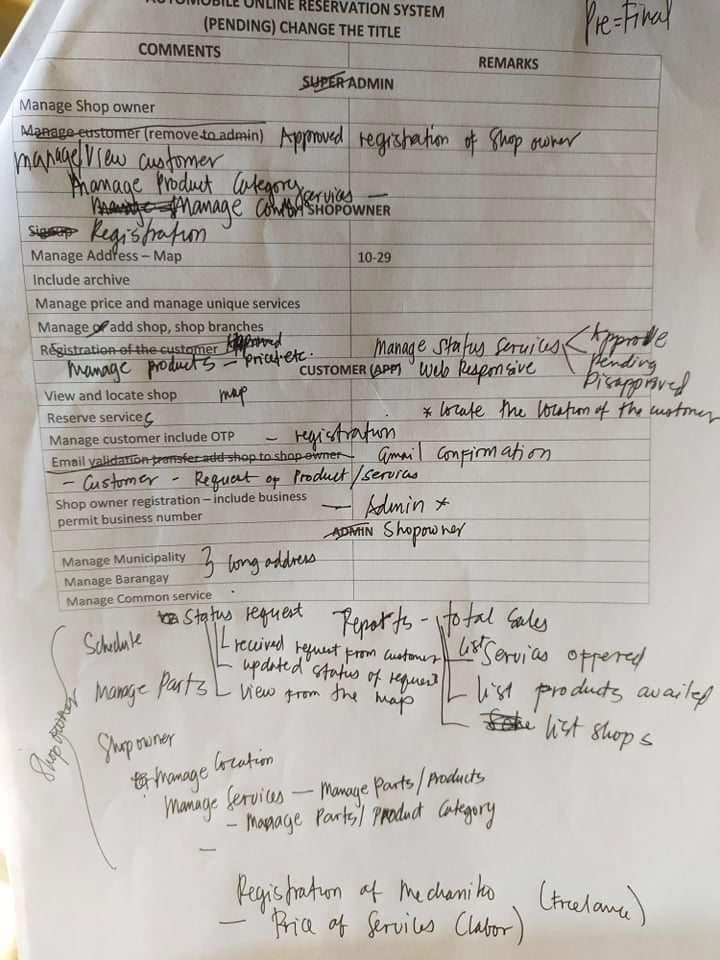 AUTOMOBILE ONLINE RESERVATION SYSTEM
(PENDING) CHANGE THE TITLE
Pre=Final
COMMENTS REMARKS
SUPER ADMIN
Manage Shop owner
Manage customer (remove to admin) Approved registration of shop owner
Manage/View customer
Manage Product Category
Manage Manage services —
SHOPOWNER
Signup Registration
Manage Address – Map 10-29
Include archive
Manage price and manage unique services
Manage or add shop, shop branches
Registration of the customer Approved
Manage Status Services Approve
Pending
Disapproved
Manage products – prices etc.
CUSTOMER (APP) Web Responsive
View and locate shop map
Reserve services
* locate the location of the customer
Manage customer include OTP – registration
Email validation transfer add shop to shop owner – Gmail confirmation
- Customer - Request of Product/services
Shop owner registration – include business
permit business number — Admin *
ADMIN Shopowner
Manage Municipality } long address
Manage Barangay
Manage Common service
Status request Reports - total sales
Schedule
received request from customer list Services offered
updated status of request
Manage Parts view from the map list products availed
list shops
Shopowner
Shop owner
Manage location
Manage Services — Manage Parts/Products
- Manage Parts/Product Category
—
Registration of Mechaniko (Freelance)
— Price of Services (labor)